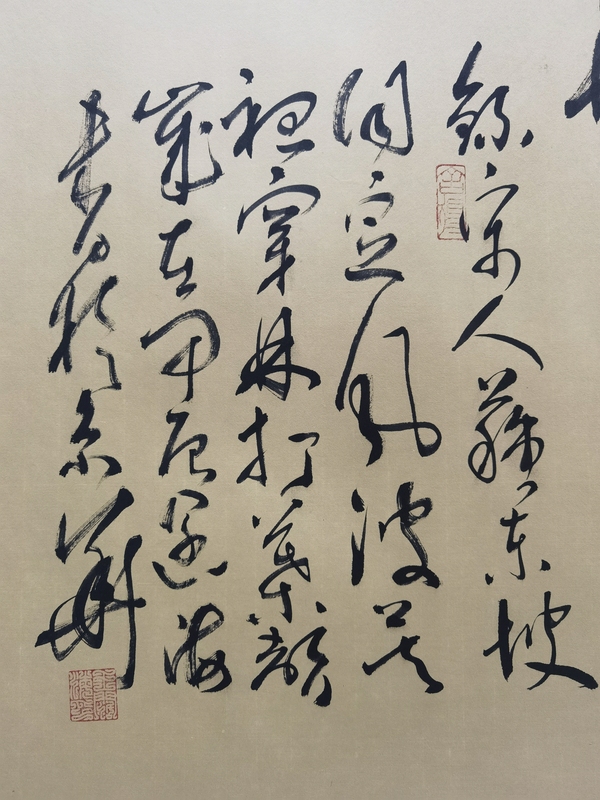 錄宋人蘇東坡
詞定風波莫
聽穿林打葉聲
歲在甲辰海
於京華